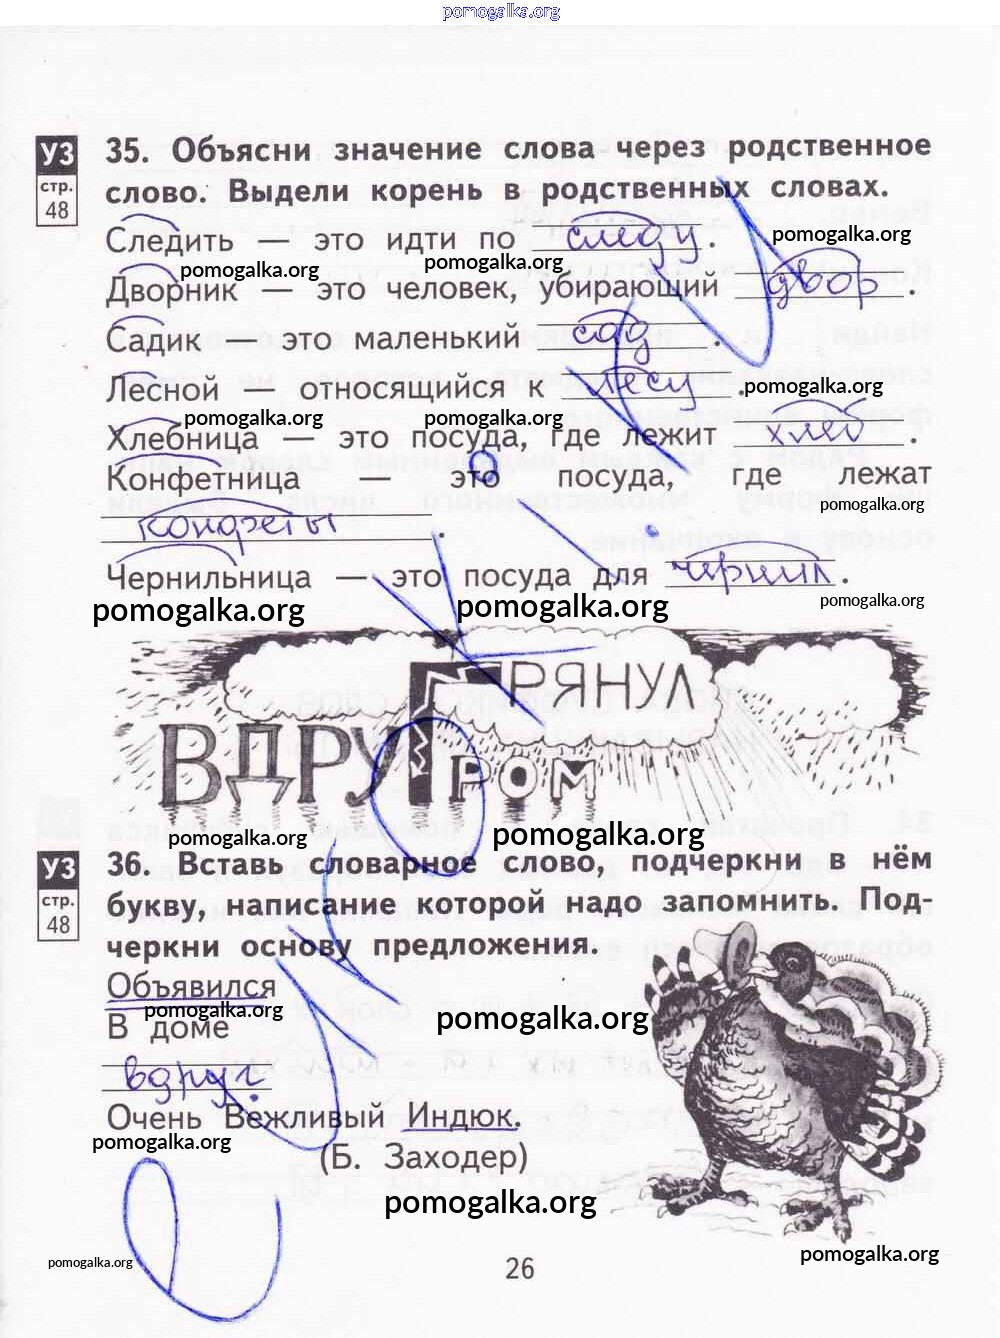 pomogalka.org
УЗ 35. Объясни значение слова через родственное
стр. 48 слово. Выдели корень в родственных словах.
Следить — это идти по следу. pomogalka.org
pomogalka.org pomogalka.org
Дворник — это человек, убирающий двор.
Садик — это маленький сад.
Лесной — относящийся к лесу. pomogalka.org
pomogalka.org pomogalka.org
Хлебница — это посуда, где лежит хлеб.
Конфетница — это посуда, где лежат
pomogalka.org
конфеты.
Чернильница — это посуда для чернил.
pomogalka.org pomogalka.org pomogalka.org
ГРЯНУЛ
ВДРУГ ГРОМ
pomogalka.org pomogalka.org
УЗ 36. Вставь словарное слово, подчеркни в нём
стр. 48 букву, написание которой надо запомнить. Под-
черкни основу предложения.
Объявился
pomogalka.org pomogalka.org
В доме
вдруг
Очень Вежливый Индюк.
pomogalka.org
(Б. Заходер)
pomogalka.org
pomogalka.org 26 pomogalka.org